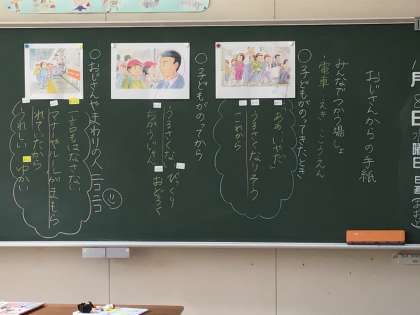 おじさんからの手紙
みんなでつかう場しょ
電車 えき こうえん
○子どもがのってきたとき
「あぁ、いやだ」
うるさくなりそう
これから
○子どもがのってから
うるさくな
ちがうじかん
びっくり
おどろく
○おじさんやまわりの人 ニコニコ
一言もはなさない
マナーやルールがまもら
れていたから
うれしい ゆかい
月
日
曜日